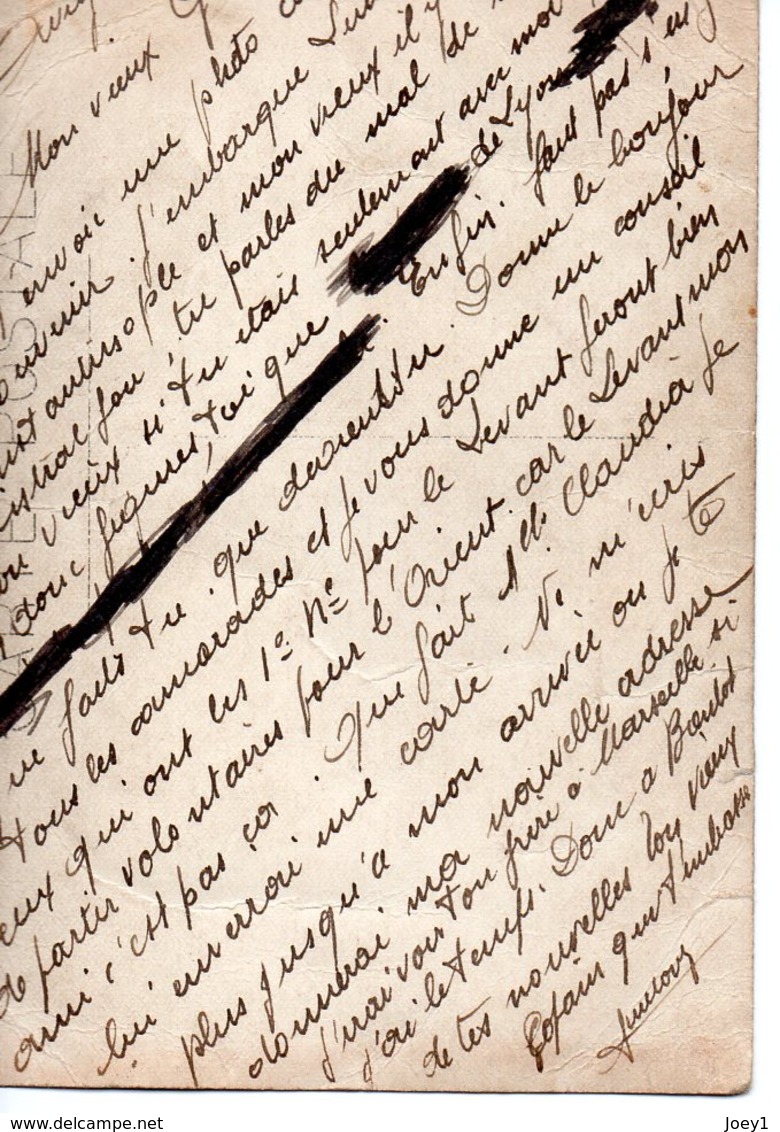 Mon vieux
envoie une photo
souvenir. J'embarque Lun
et mon vieux il y
Mistral fou, tu parles du mal de
mon vieux si tu étais seulement avec moi
donc que de Lyon
Enfin. faut pas s'en
que fais tu. que devientu. Donne le bonjour
tous les camarades et je vous donne un conseil
ceux qui ont les 1º Nº pour le Levant feront bien
de partir volontaires pour l'Orient car le Levant mon
ami c'est pas ça. Que fait Mlle Claudia je
lui enverrai une carte. Ni m'ecris
plus jusqu'à mon arrivée ou je te
donnerai ma nouvelle adresse
j'irai voir ton frère à Marseille si
j'ai le temps. Donc a Bientot
de tes nouvelles ton vieux
Copain qui t'embrasse
CARTE POSTALE
delcampe.net
Joey1